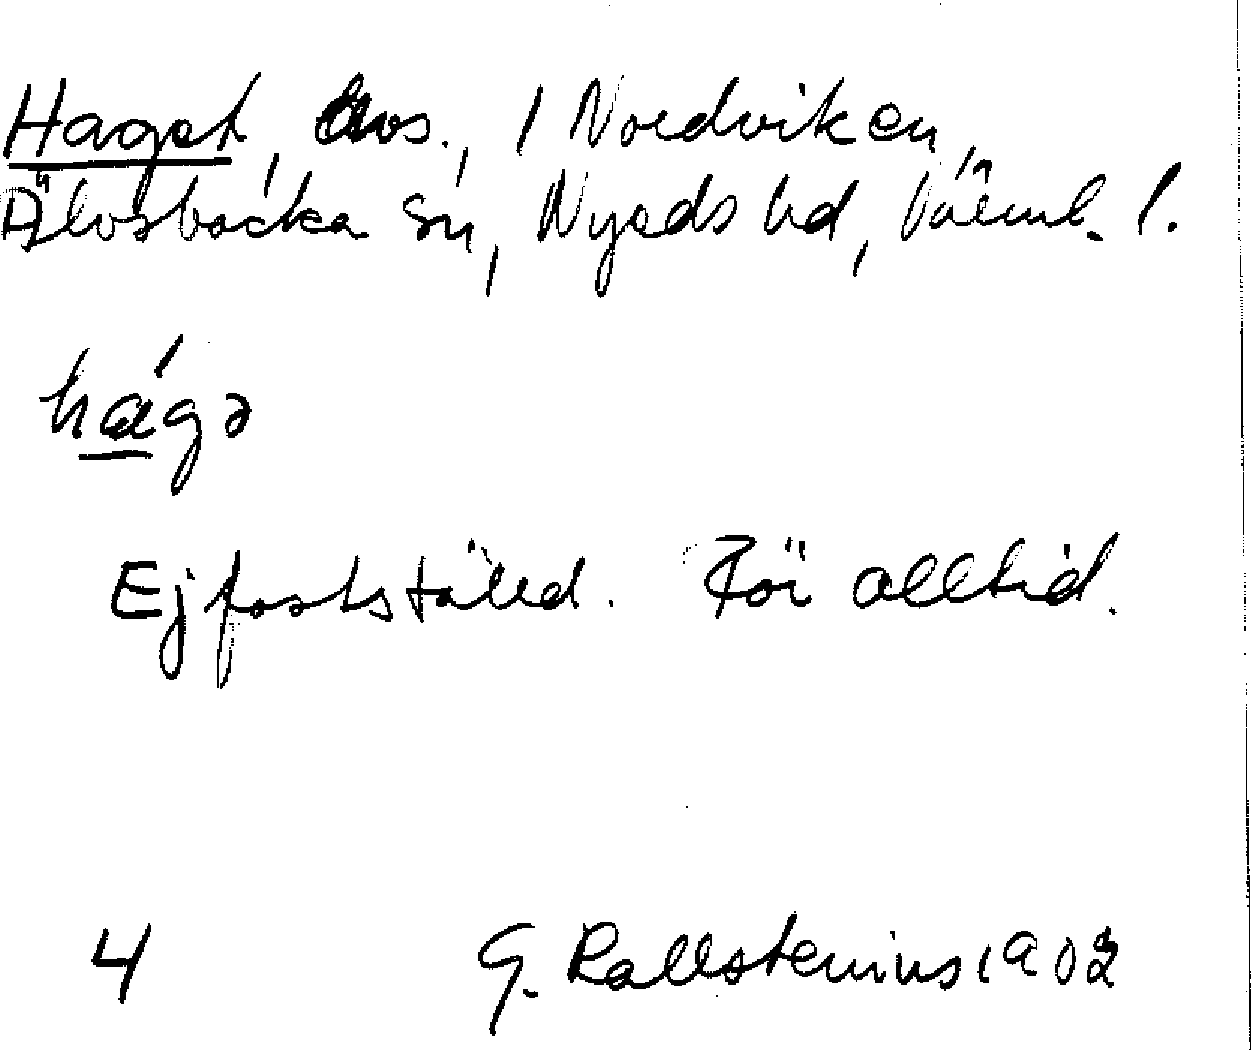 Haget, avs., i Nordviken,
Älvsbacka sn, Nyeds hd, Värml. l.
hágə
Ej fastställd. För alltid.
4 G. Kallstenius 1902